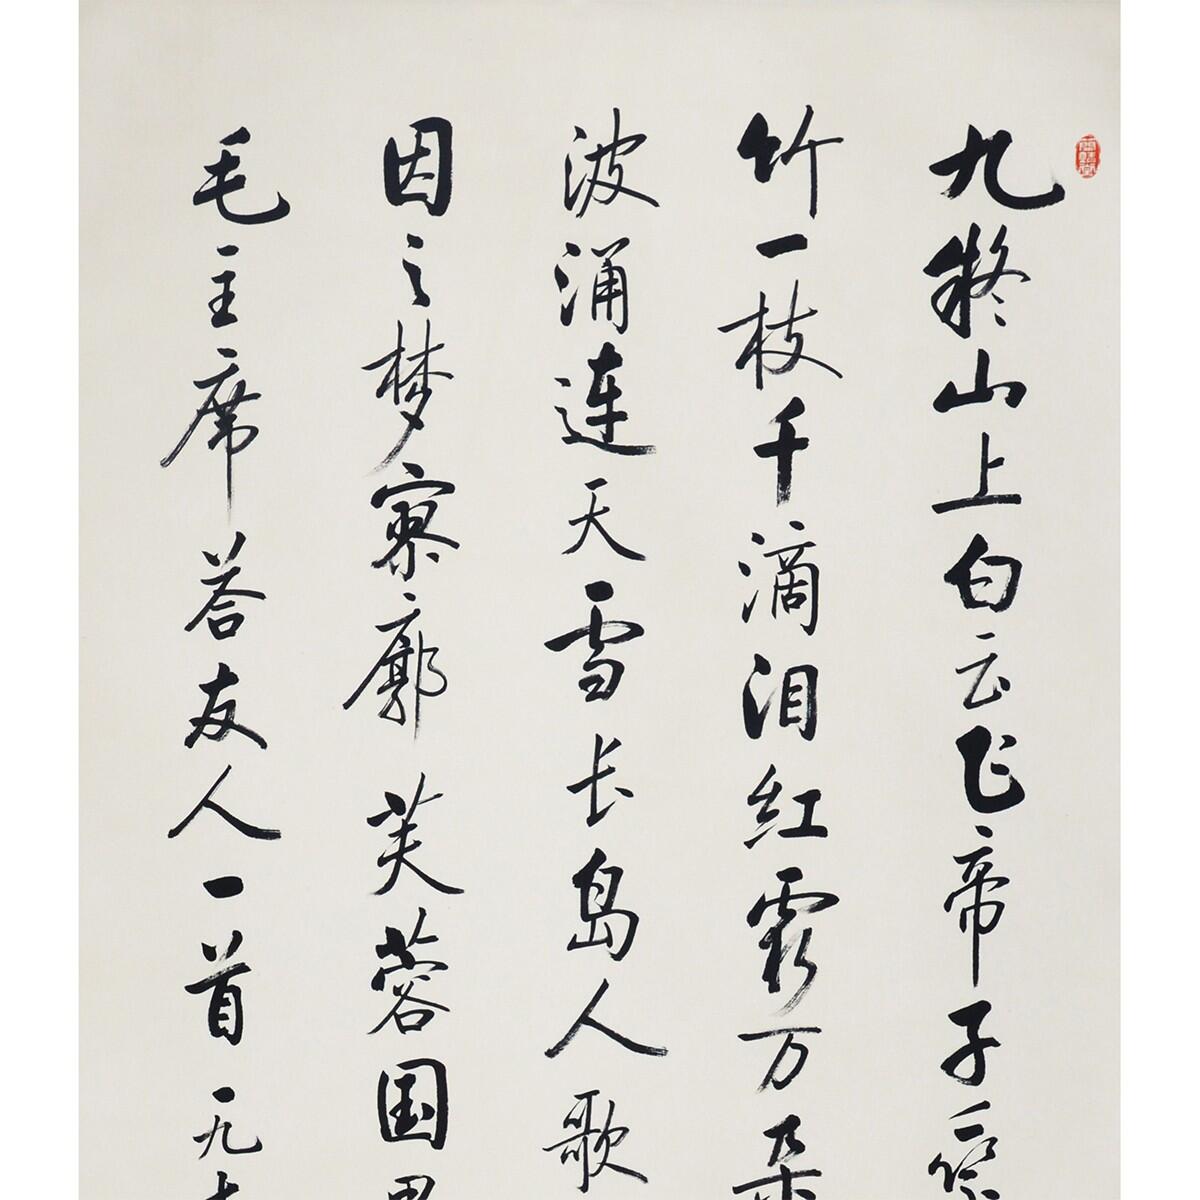 九疑山上白云飞帝子
竹一枝千滴泪红霞万朵
波涌连天雪长岛人歌
因之梦寥廓芙蓉国里
毛主席答友人一首一九